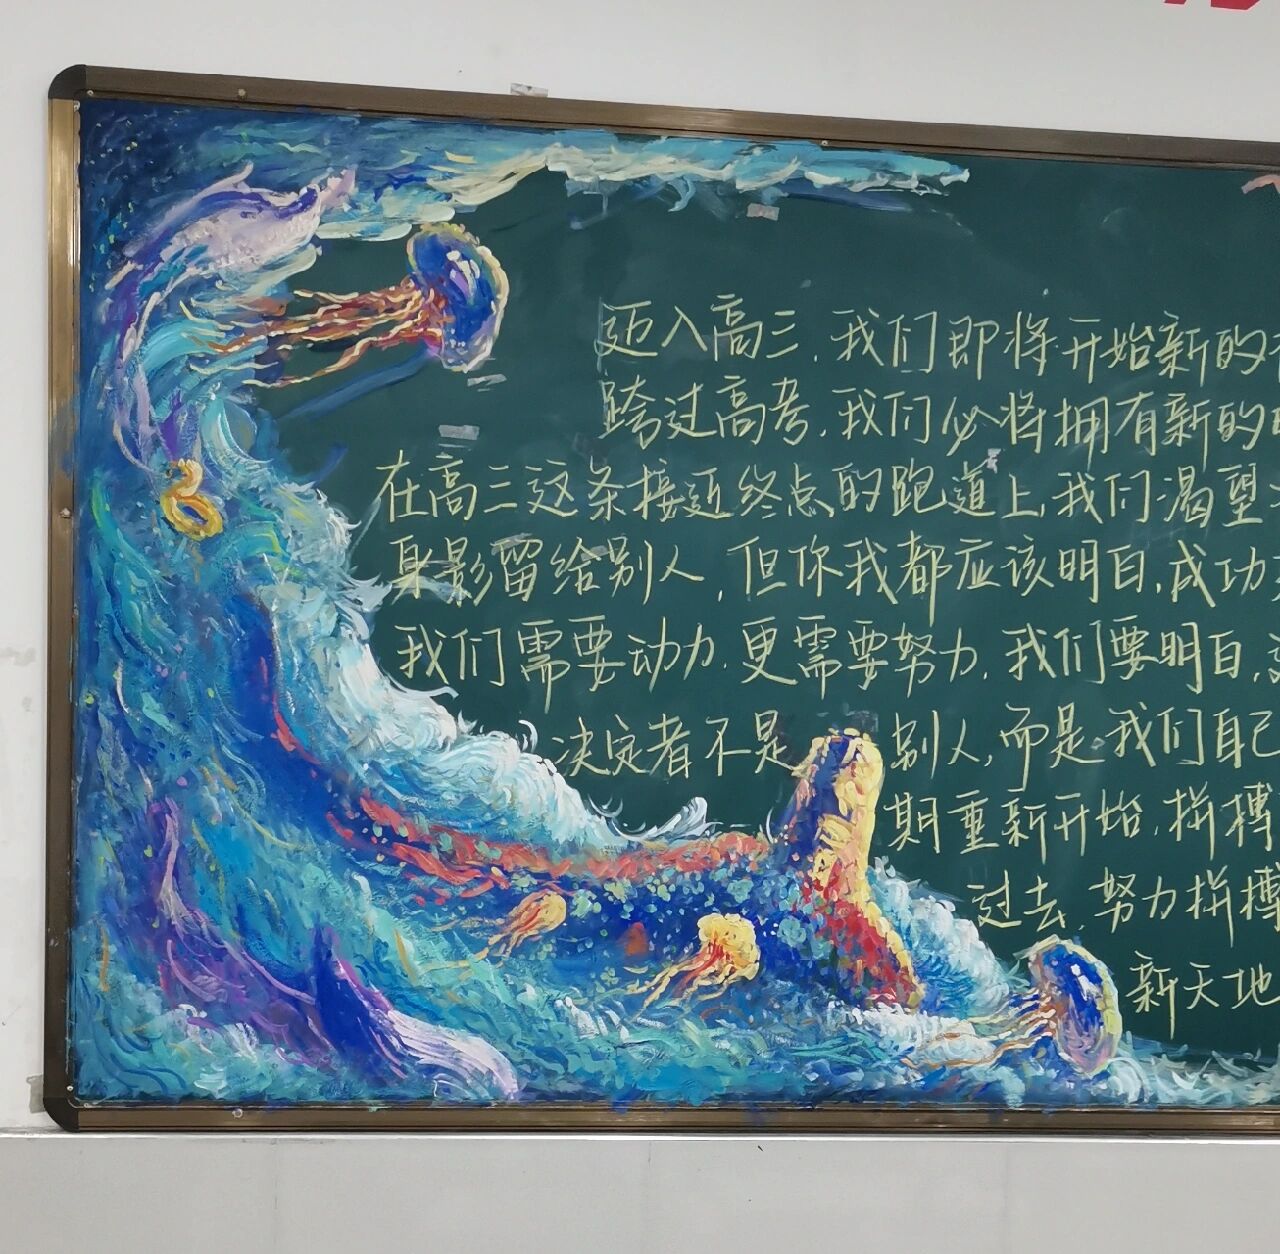 迈入高三,我们即将开始新的
跨过高考,我们必将拥有新的
在高三这条接近终点的跑道上,我们渴望
身影留给别人,但你我都应该明白,成功
我们需要动力,更需要努力,我们要明白,
决定者不是别人,而是我们自己
期重新开始,拼搏
过去,努力拼搏
新天地